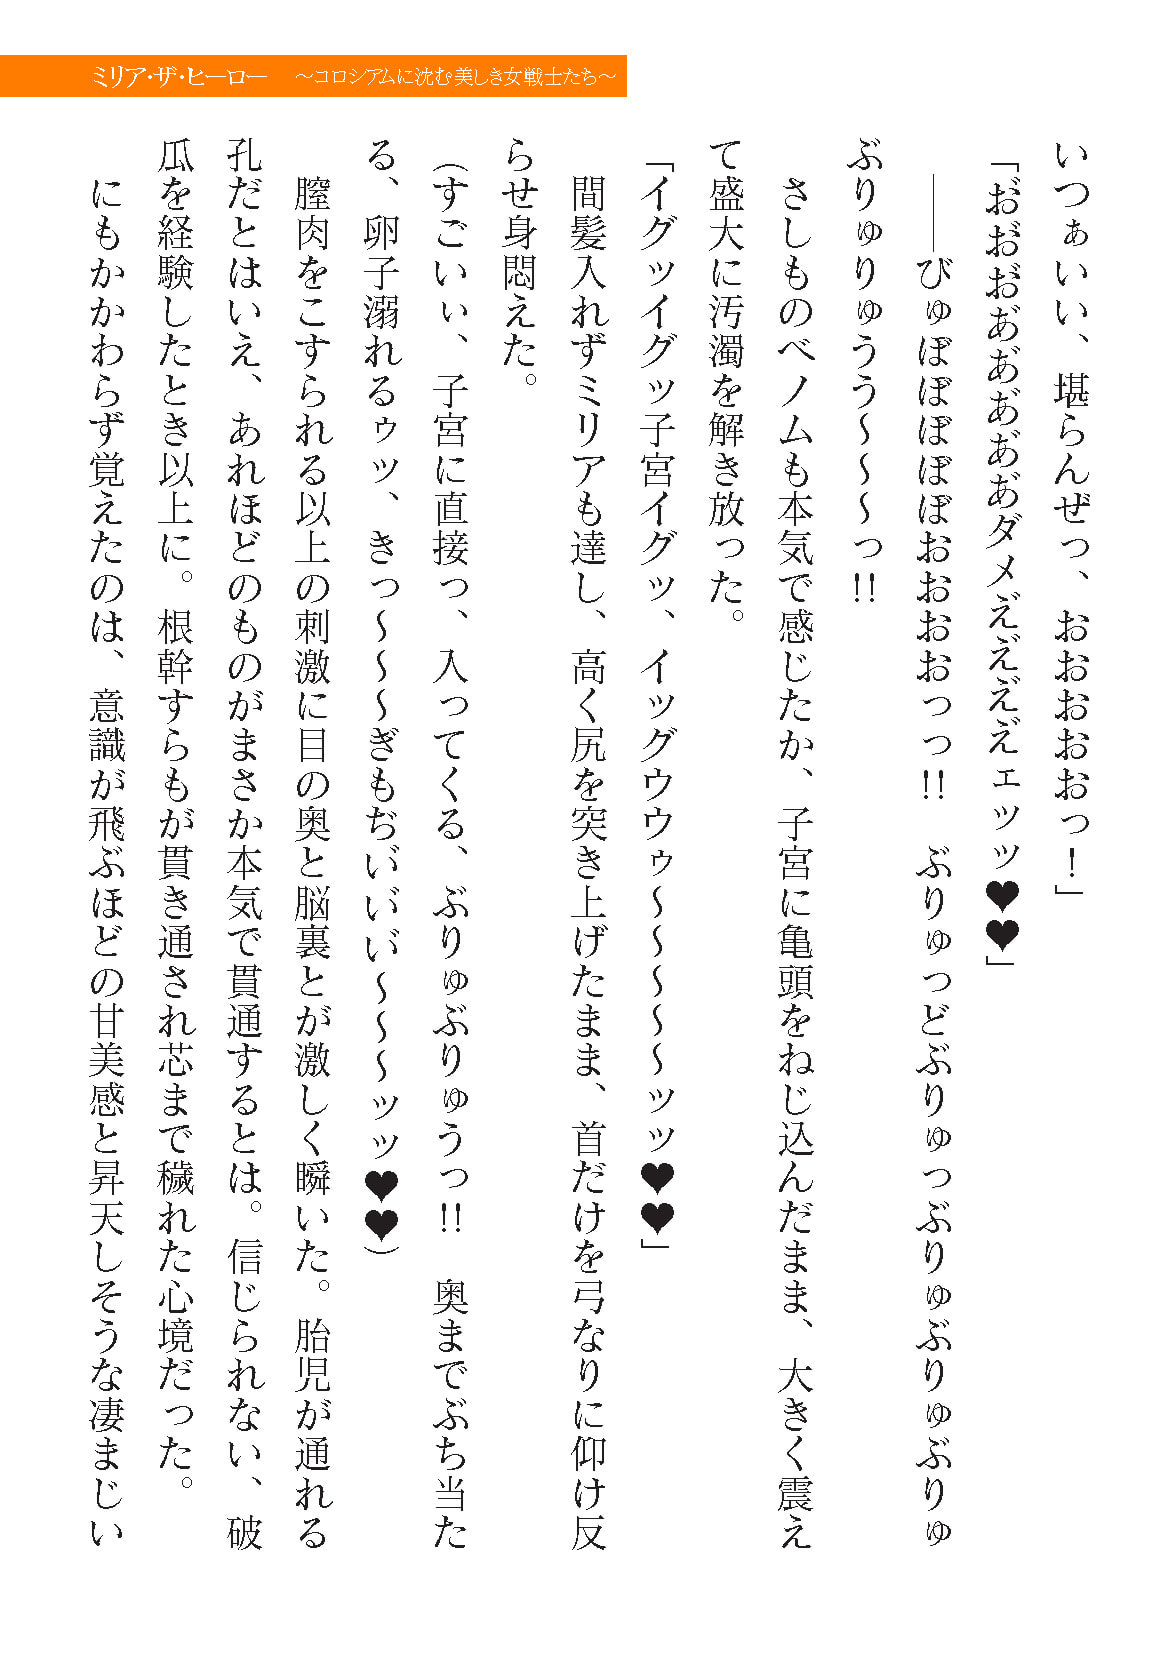 ミリア・ザ・ヒーロー　～コロシアムに沈む美しき女戦士たち～
いつぁいい、堪らんぜっ、おおおおおっ！」
「お゙お゙お゙あ゙あ゙あ゙あ゙あ゙ダメえ゙え゙え゙え゙ェッッ♥♥」
――びゅぼぼぼぼぼおおおおっっ!!　ぶりゅっどぶりゅつぶりゅぶりゅぶりゅ
ぶりゅりゅうう～～～っ!!
　さしものベノムも本気で感じたか、子宮に亀頭をねじ込んだまま、大きく震え
て盛大に汚濁を解き放った。
「イグッイグッ子宮イグッ、イッグウウゥ～～～～～ッッ♥♥」
　間髪入れずミリアも達し、高く尻を突き上げたまま、首だけを弓なりに仰け反
らせ身悶えた。
（すごいぃ、子宮に直接っ、入ってくる、ぶりゅぶりゅうっ!!　奥までぶち当た
る、卵子溺れるゥッ、きっ～～～ぎもぢい゙い゙い゙～～～ッッ♥♥）
　膣肉をこすられる以上の刺激に目の奥と脳裏とが激しく瞬いた。胎児が通れる
孔だとはいえ、あれほどのものがまさか本気で貫通するとは。信じられない、破
瓜を経験したとき以上に。根幹すらもが貫き通され芯まで穢れた心境だった。
　にもかかわらず覚えたのは、意識が飛ぶほどの甘美感と昇天しそうな凄まじい